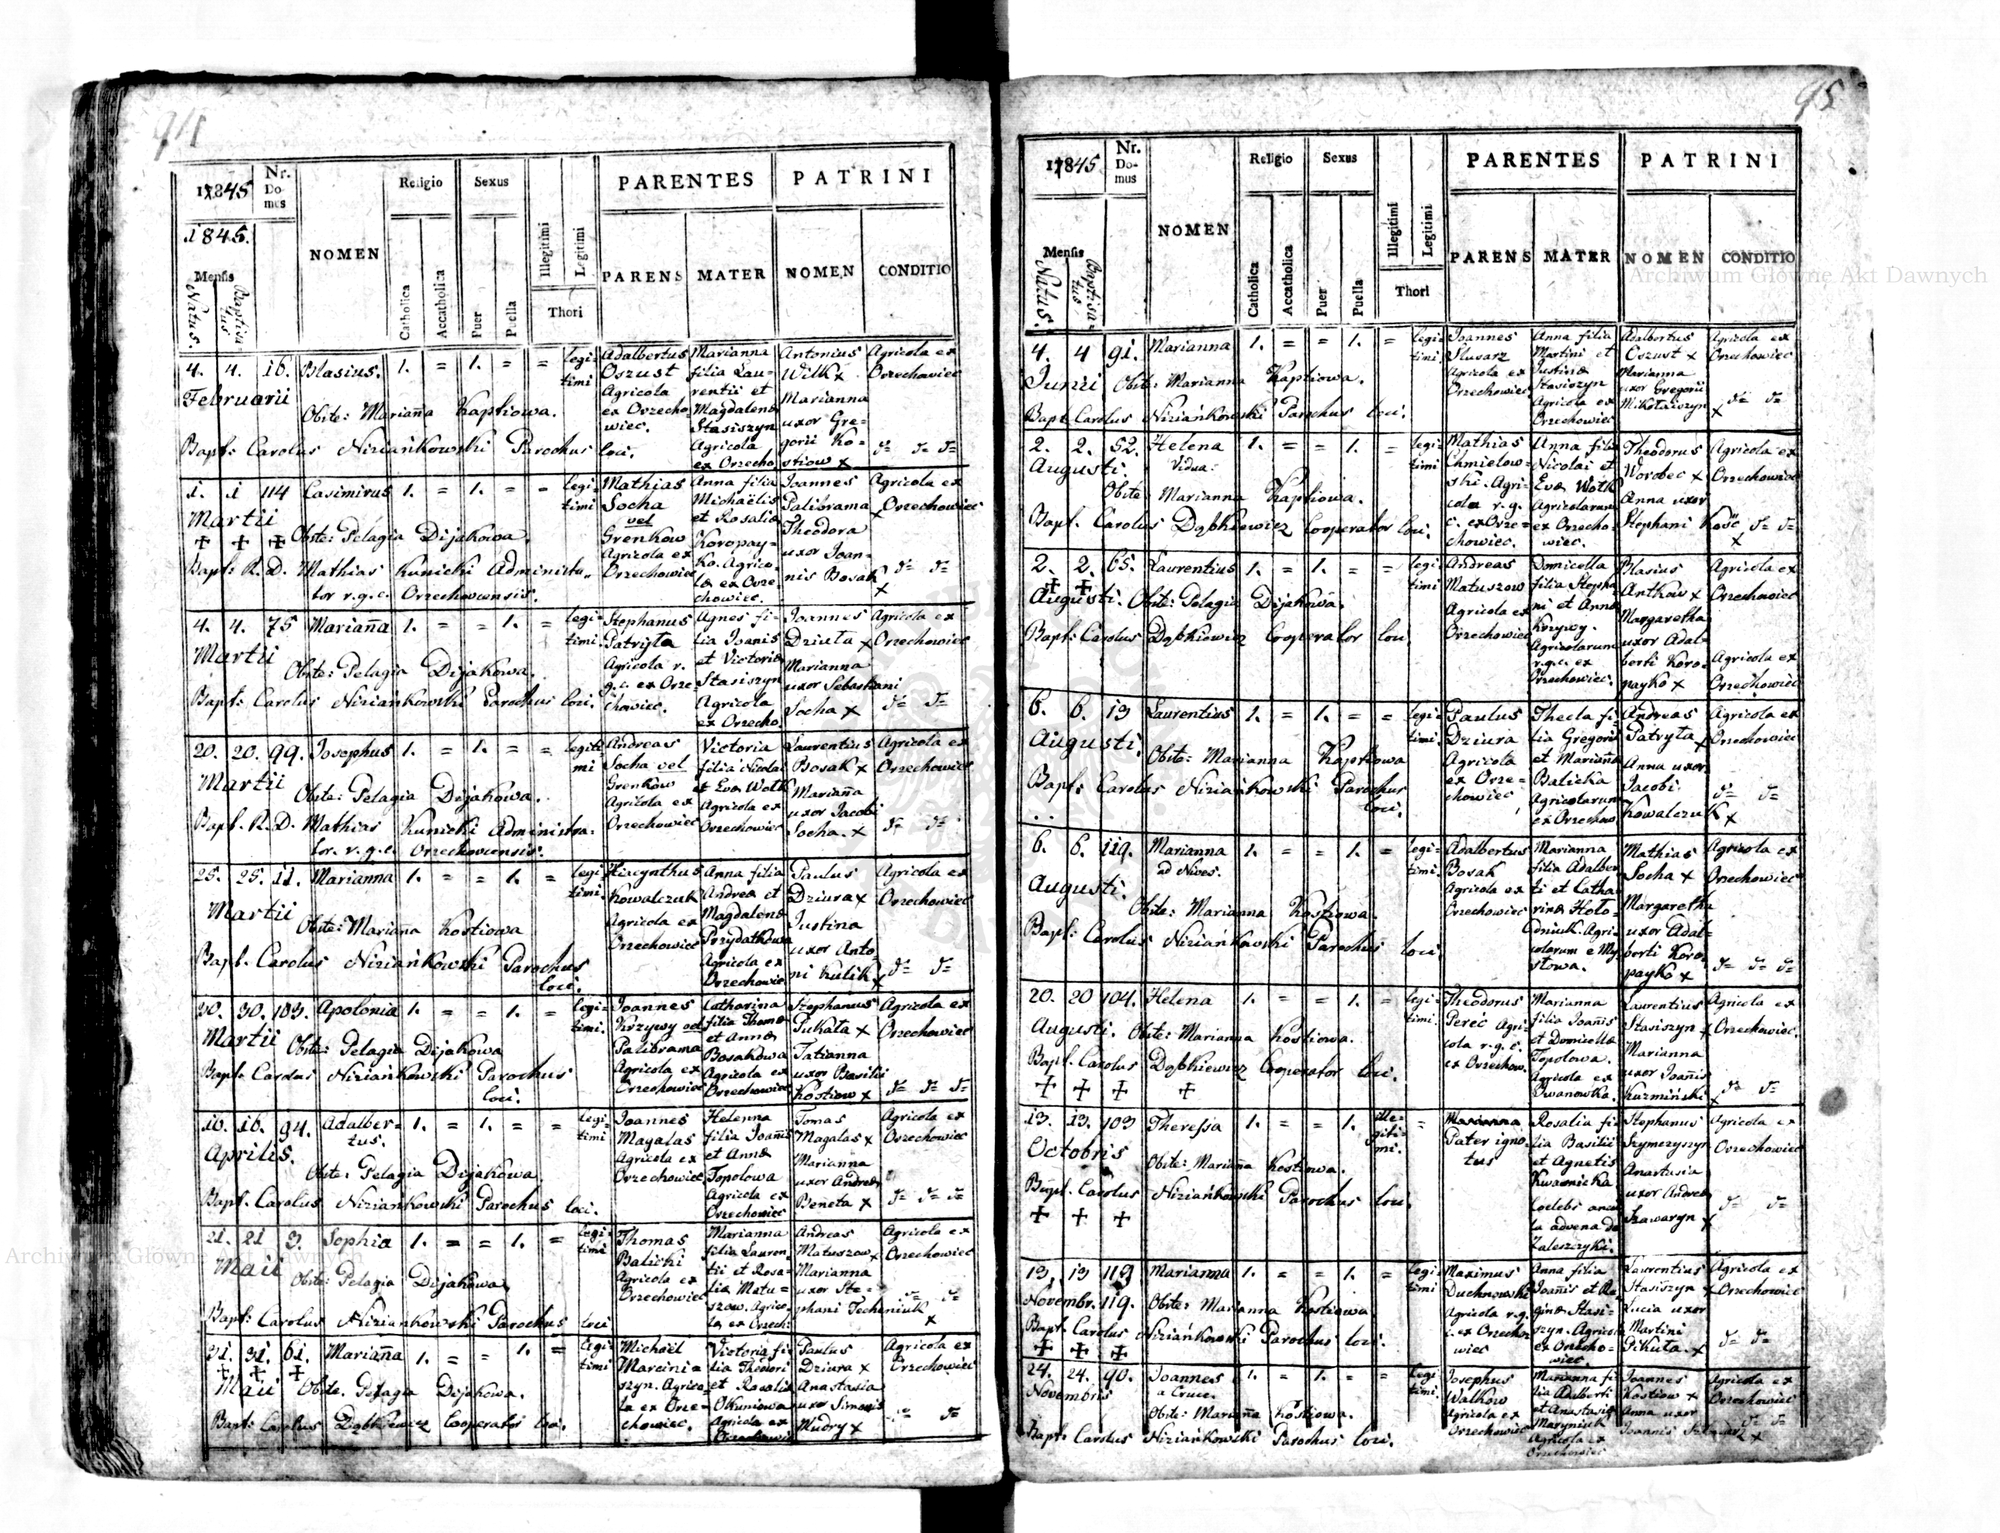 94
17845
Nr. Domus
NOMEN
Religio
Sexus
PARENTES
PATRINI
1845.
Mensis
Natus
Baptisatus
Catholica
Accatholica
Puer
Puella
Illegitimi
Legitimi
Thori
PARENS
MATER
NOMEN
CONDITIO
4. 4. 16. Blasius. 1. = 1. = = legitimi Adalbertus Oszust Agricola ex Orzechowiec. Marianna filia Laurentii et Magdalena Stasiszyn Agricola ex Orzecho Antonius Wilk x Marianna uxor Gregorii Kostiow x Agricola ex Orzechowiec
Februarii
Obste: Mariaña Kaptiowa.
Bapt: Carolus Niziańkowski Parochus loci.
1. 1 114 Casimirus 1. = 1. = = legitimi Mathias Socha vel Grenkow Agricola ex Orzechowiec Anna filia Michaëlis et Rosalia Koropayko. Agricola ex Orzechowiec. Joannes Palibrama x Theodora uxor Joannis Bosak x Agricola ex Orzechowiec
Martii
Obste: Pelagia Dijakowa.
Bapt: R. D. Mathias Kunicki Administrator r.g.c. Orzechovcensis.
4. 4. 75 Mariaña 1. = = 1. = legitimi Stephanus Patryta Agricola r. g. c. ex Orzechowiec. Agnes filia Joanis et Victoria Stasiszyn Agricola ex Orzecho. Joannes Dziuta x Marianna uxor Sebastiani Socha x Agricola ex Orzechowiec
Martii
Obste: Pelagia Dijakowa.
Bapt: Carolus Niziańkowski Parochus loci.
20. 20. 99. Josephus 1. = 1. = = legitimi Andreas Socha vel Grenkow Agricola ex Orzechowiec Victoria filia Nicolai et Eva Wolk Agricola ex Orzechowiec Laurentius Bosak x Mariaña uxor Jacobi Socha. x Agricola ex Orzechowiec
Martii
Obste: Pelagia Dijakowa.
Bapt. R. D. Mathias Kunicki Administrator. r. g. c. Orzechovcensis.
25. 25. 11. Marianna 1. = = 1. = legitimi Hiacynthus Kowalczuk Agricola ex Orzechowiec Anna filia Andrea et Magdalena Przydatkowa Agricola ex Orzechowiec Paulus Dziura x Justina uxor Antoni Kulik x Agricola ex Orzechowiec
Martii
Obste: Mariaña Kostiowa
Bapt. Carolus Niziańkowski Parochus loci.
30. 30. 103. Apolonia 1. = = 1. = legitimi. Joannes Krzywy vel Palibrama Agricola ex Orzechowiec Catharina filia Thoma et Anna Bosakowa Agricola ex Orzechowiec Stephanus Pukata x Tatianna uxor Basilii Kostiow x Agricola ex Orzechowiec
Martii
Obste: Pelagia Dijakowa
Bapt. Carolus Niziańkowski Parochus loci.
16. 16. 94. Adalbertus. 1. = 1. = = legitimi Joannes Magalas Agricola ex Orzechowiec Helenna filia Joañis et Anna Topolowa Agricola ex Orzechowiec Tomas Magalas x Marianna uxor Andrea Beneta x Agricola ex Orzechowiec
Aprilis.
Obste: Pelagia Dijakowa.
Bapt. Carolus Niziańkowski Parochus loci.
21. 21 3. Sophia 1. = = 1. = legitimi Thomas Balicki Agricola ex Orzechowiec Marianna filia Laurentii et Rosalia Matuszow. Agricola ex Orzech. Andreas Matuszow x Marianna uxor Stephani Techeniuk x Agricola ex Orzechowiec
Maii
Obste: Pelagia Dijakowa.
Bapt: Carolus Niziańkowski Parochus loci
31. 31. 61. Mariaña 1. = = 1. = legitimi Michaël Marciniszyn. Agricola ex Orzechowiec. Victoria filia Theodori et Rosalia Okuniowa Agricola ex Orzechowiec Paulus Dziura x Anastasia uxor Simonis Mudry x Agricola ex Orzechowiec
Maii
Obste. Pelagia Dijakowa.
Bapt: Carolus Dąbkiewicz Cooperator loci.
95
17845
Nr. Domus
NOMEN
Religio
Sexus
PARENTES
PATRINI
Mensis
Natus.
Baptisatus.
Catholica
Accatholica
Puer
Puella
Illegitimi
Legitimi
Thori
PARENS
MATER
NOMEN
CONDITIO
4. 4 91. Marianna 1. = = 1. = legitimi Joannes Slusarz Agricola ex Orzechowiec Anna filia Martini et Justina Stasiszyn Agricola ex Orzechowiec Adalbertus Oszust x Marianna uxor Gregorii Mikołaiszyn x Agricola ex Orzechowiec
Junii
Obste: Marianna Kaptiowa.
Bapt Carolus Niziańkowski Parochus loci.
2. 2. 52. Helena Vidua: 1. = = 1. = legitimi Mathias Chmielowski. Agricola r. g. c. ex Orzechowiec. Anna filia Nicolai et Eva Wolk Agricolarum ex Orzechowiec. Theodorus Worobec x Anna uxor Stephani Kość x Agricola ex Orzechowiec
Augusti.
Obste Marianna Kaptiowa.
Bapt. Carolus Dąbkiewicz Cooperator loci.
2. 2. 65. Laurentius 1. = 1. = = legitimi Andreas Matuszow Agricola ex Orzechowiec Domicella filia Stephani et Anna Krzywy. Agricolarum r.g.c. ex Orzechowiec. Blasius Antkow x Margaretha uxor Adalberti Koropayko x Agricola ex Orzechowiec Agricola ex Orzechowiec
Augusti. Obste: Pelagia Dijakowa.
Bapt: Carolus Dąbkiewicz Cooperator loci.
6. 6. 13 Laurentius 1. = 1. = = legitimi. Paulus Dziura Agricola ex Orzechowiec Thecla filia Gregorii et Mariaña Balicka Agricolarum ex Orzechow Andreas Patryta x Anna uxor Jacobi Kowalczuk x Agricola ex Orzechowiec
Augusti.
Obste: Marianna Kaptiowa
Bapt: Carolus Niziańkowski Parochus loci.
6. 6. 119. Marianna ad Nives. 1. = = 1. = legitimi. Adalbertus Bosak Agricola ex Orzechowiec Marianna filia Adalberti et Catharina Hołodniuk Agricolarum e Mystowa. Mathias Socha x Margaretha uxor Adalberti Koropayko x Agricola ex Orzechowiec
Augusti.
Obste: Marianna Kostiowa.
Bapt: Carolus Niziańkowski Parochus loci
20. 20 104. Helena 1. = = 1. = legitimi. Theodorus Pereć Agricola r. g. c. ex Orzechow. Marianna filia Joañis et Domicella Topolowa. Agricola ex Iwanowka. Laurentius Stasiszyn x Marianna uxor Joañis Kuzmiński x Agricola ex Orzechowiec.
Augusti. Obste: Marianna Kostiowa.
Bapt. Carolus Dąbkiewicz Cooperator loci.
13. 13. 103 Theressa 1. = = 1. illegitimi. = Pater ignotus Rosalia filia Basilii et Agnetis Kwasnicka Coelebs ancilla advena de Zaleszczyki. Stephanus Szymczyszyn Anastasia uxor Andrea Szawaryn x Agricola ex Orzechowiec
Octobris
Obste: Mariaña Kostiowa.
Bapt. Carolus Niziańkowski Parochus loci.
13. 13 119 Marianna 1. = = 1. = legitimi Maximus Duchnowski Agricola r.g.c. ex Orzechowiec Anna filia Joanis et Regina Stasiszyn. Agricola ex Orzechowiec Laurentius Stasiszyn x Lucia uxor Martini Pikuta. x Agricola ex Orzechowiec
Novembr. 119. Obste: Marianna Kostiowa.
Bapt. Carolus Niziańkowski Parochus loci.
24. 24. 90. Joannes a Cruce. 1. = 1. = = legitimi. Josephus Walkow Agricola ex Orzechowiec Marianna filia Adalberti et Anastasia Maryniuk Agricola ex Orzechowiec Joannes Kostiow x Anna uxor Joannis x Agricola ex Orzechowiec
Novembris
Obste: Mariaña Kostiowa.
Bapt: Carolus Niziańkowski Parochus loci.
Archiwum Główne Akt Dawnych
Archiwum Główne Akt Dawnych